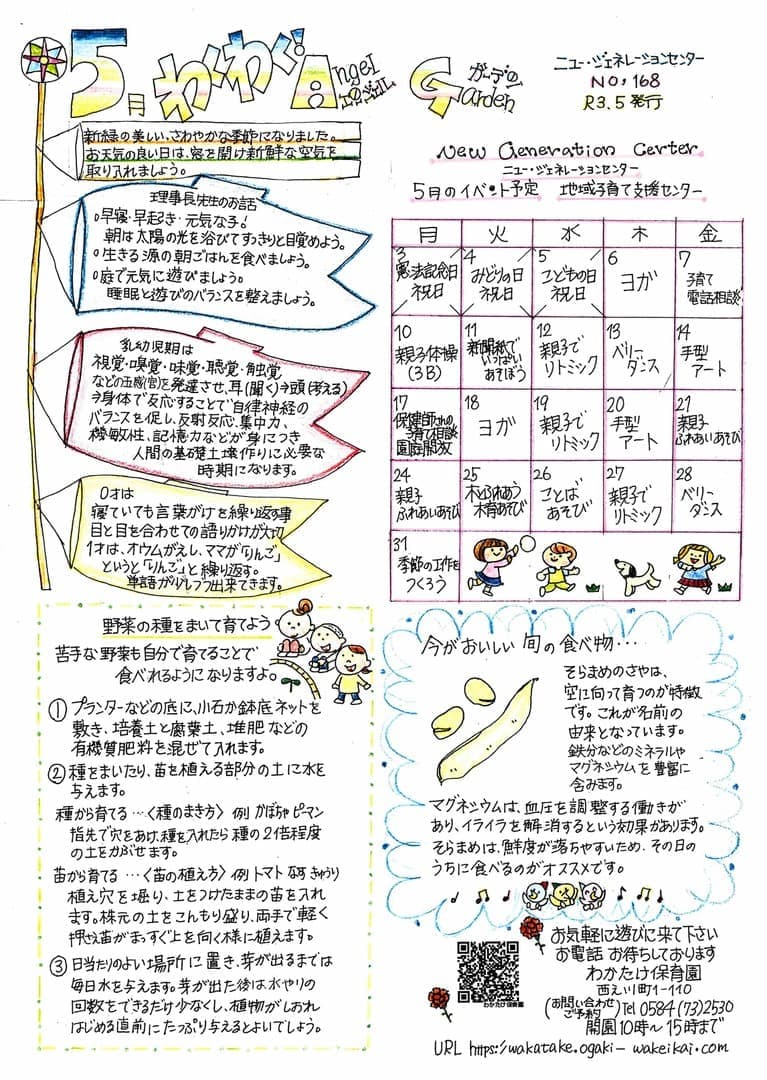 5月 わくわく! Angel エンジェル Garden ガーデン
ニュー・ジェネレーションセンター
NO,168
R3.5発行
新緑の美しい、さわやかな季節になりました。
お天気の良い日は、窓を開け新鮮な空気を
取り入れましょう。
理事長先生のお話
○早寝・早起き・元気な子!
朝は太陽の光を浴びてすっきりと目覚めよう。
○生きる源の朝ごはんを食べましょう。
○庭で元気に遊びましょう。
睡眠と遊びのバランスを整えましょう。
乳幼児期は
視覚・嗅覚・味覚・聴覚・触覚
などの五感(官)を発達させ、耳(聞く)→頭(考える)
→身体で反応することで自律神経の
バランスを促し、反射反応、集中力、
機敏性、記憶力などが身につき
人間の基礎土壌作りに必要な
時期になります。
0才は
寝ていても言葉がけを繰り返す事
目と目を合わせての語りかけが大切
1才は、オウムがえし、ママが「りんご」
というと「りんご」と繰り返す。
単語が少しづつ出来てきます。
New Generation Center
ニュー・ジェネレーションセンター
5月のイベント予定 地域子育て支援センター
月 火 水 木 金
3 憲法記念日 祝日
4 みどりの日 祝日
5 こどもの日 祝日
6 ヨガ
7 子育て 電話相談
10 親子体操 (3B)
11 新聞紙で いっぱい あそぼう
12 親子で リトミック
13 ベリー ダンス
14 手型 アート
17 保健師さんの 子育て相談 園庭開放
18 ヨガ
19 親子で リトミック
20 手型 アート
21 親子 ふれあいあそび
24 親子 ふれあいあそび
25 木とふれあう 木育あそび
26 ことば あそび
27 親子で リトミック
28 ベリー ダンス
31 季節の工作を つくろう
野菜の種をまいて育てよう
苦手な野菜も自分で育てることで
食べれるようになりますよ。
① プランターなどの底に、小石か鉢底ネットを
敷き、培養土と腐葉土、堆肥などの
有機質肥料を混ぜて入れます。
② 種をまいたり、苗を植える部分の土に水を
与えます。
種から育てる …〈種のまき方〉 例 かぼちゃ ピーマン
指先で穴をあけ、種を入れたら種の2倍程度
の土をかぶせます。
苗から育てる …〈苗の植え方〉 例 トマト なす きゅうり
植え穴を掘り、土をつけたままの苗を入れ
ます。株元の土をこんもり盛り、両手で軽く
押さえ苗がまっすぐ上を向く様に植えます。
③ 日当たりのよい場所に置き、芽が出るまでは
毎日水を与えます。芽が出た後は水やりの
回数をできるだけ少なくし、植物がしおれ
はじめる直前にたっぷり与えるとよいでしょう。
今がおいしい 旬の食べ物…
そらまめのさやは、
空に向って育つのが特徴
です。これが名前の
由来となっています。
鉄分などのミネラルや
マグネシウムを豊富に
含みます。
マグネシウムは、血圧を調整する働きが
あり、イライラを解消するという効果があります。
そらまめは、鮮度が落ちやすいため、その日の
うちに食べるのがオススメです。
お気軽に遊びに来て下さい
お電話 お待ちしております
わかたけ保育園
西之川町1-110
(お問い合わせ ご予約) Tel 0584(73)2530
開園10時〜15時まで
わかたけ保育園
URL https://wakatake.ogaki-wakeikai.com